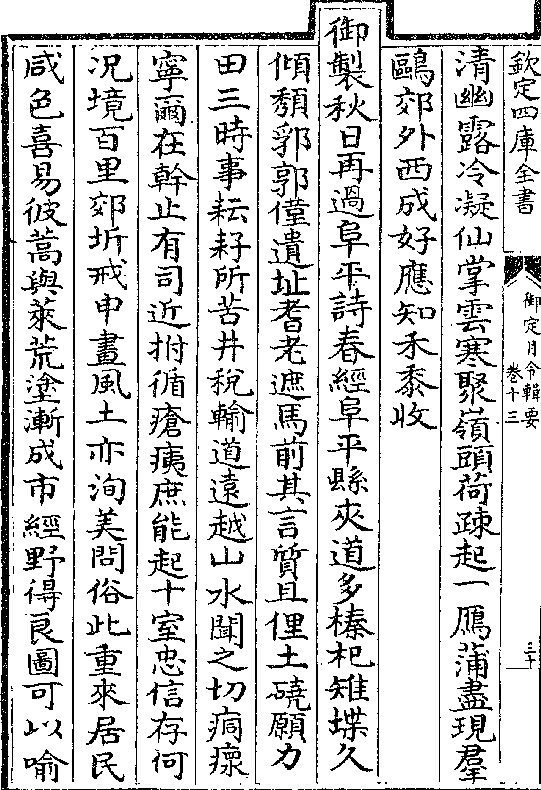 欽定四庫全書
御定月令輯要
卷十三
三十
清幽露冷凝仙掌雲寒聚嶺頭荷疎起一鴈蒲盡現羣
鷗郊外西成好應知禾黍收
御製秋日再過阜平詩春經阜平縣夾道多榛杞雉堞久
傾頽郛郭僅遺址耆老遮馬前其言質且俚土磽願力
田三時事耘耔所苦井稅輸道遠越山水聞之切痌瘝
寧爾在幹止有司近拊循瘡痍庶能起十室忠信存何
况境百里郊圻戒申畫風土亦洵美問俗此重來居民
咸色喜易彼蒿與萊荒塗漸成市經野得良圖可以喻